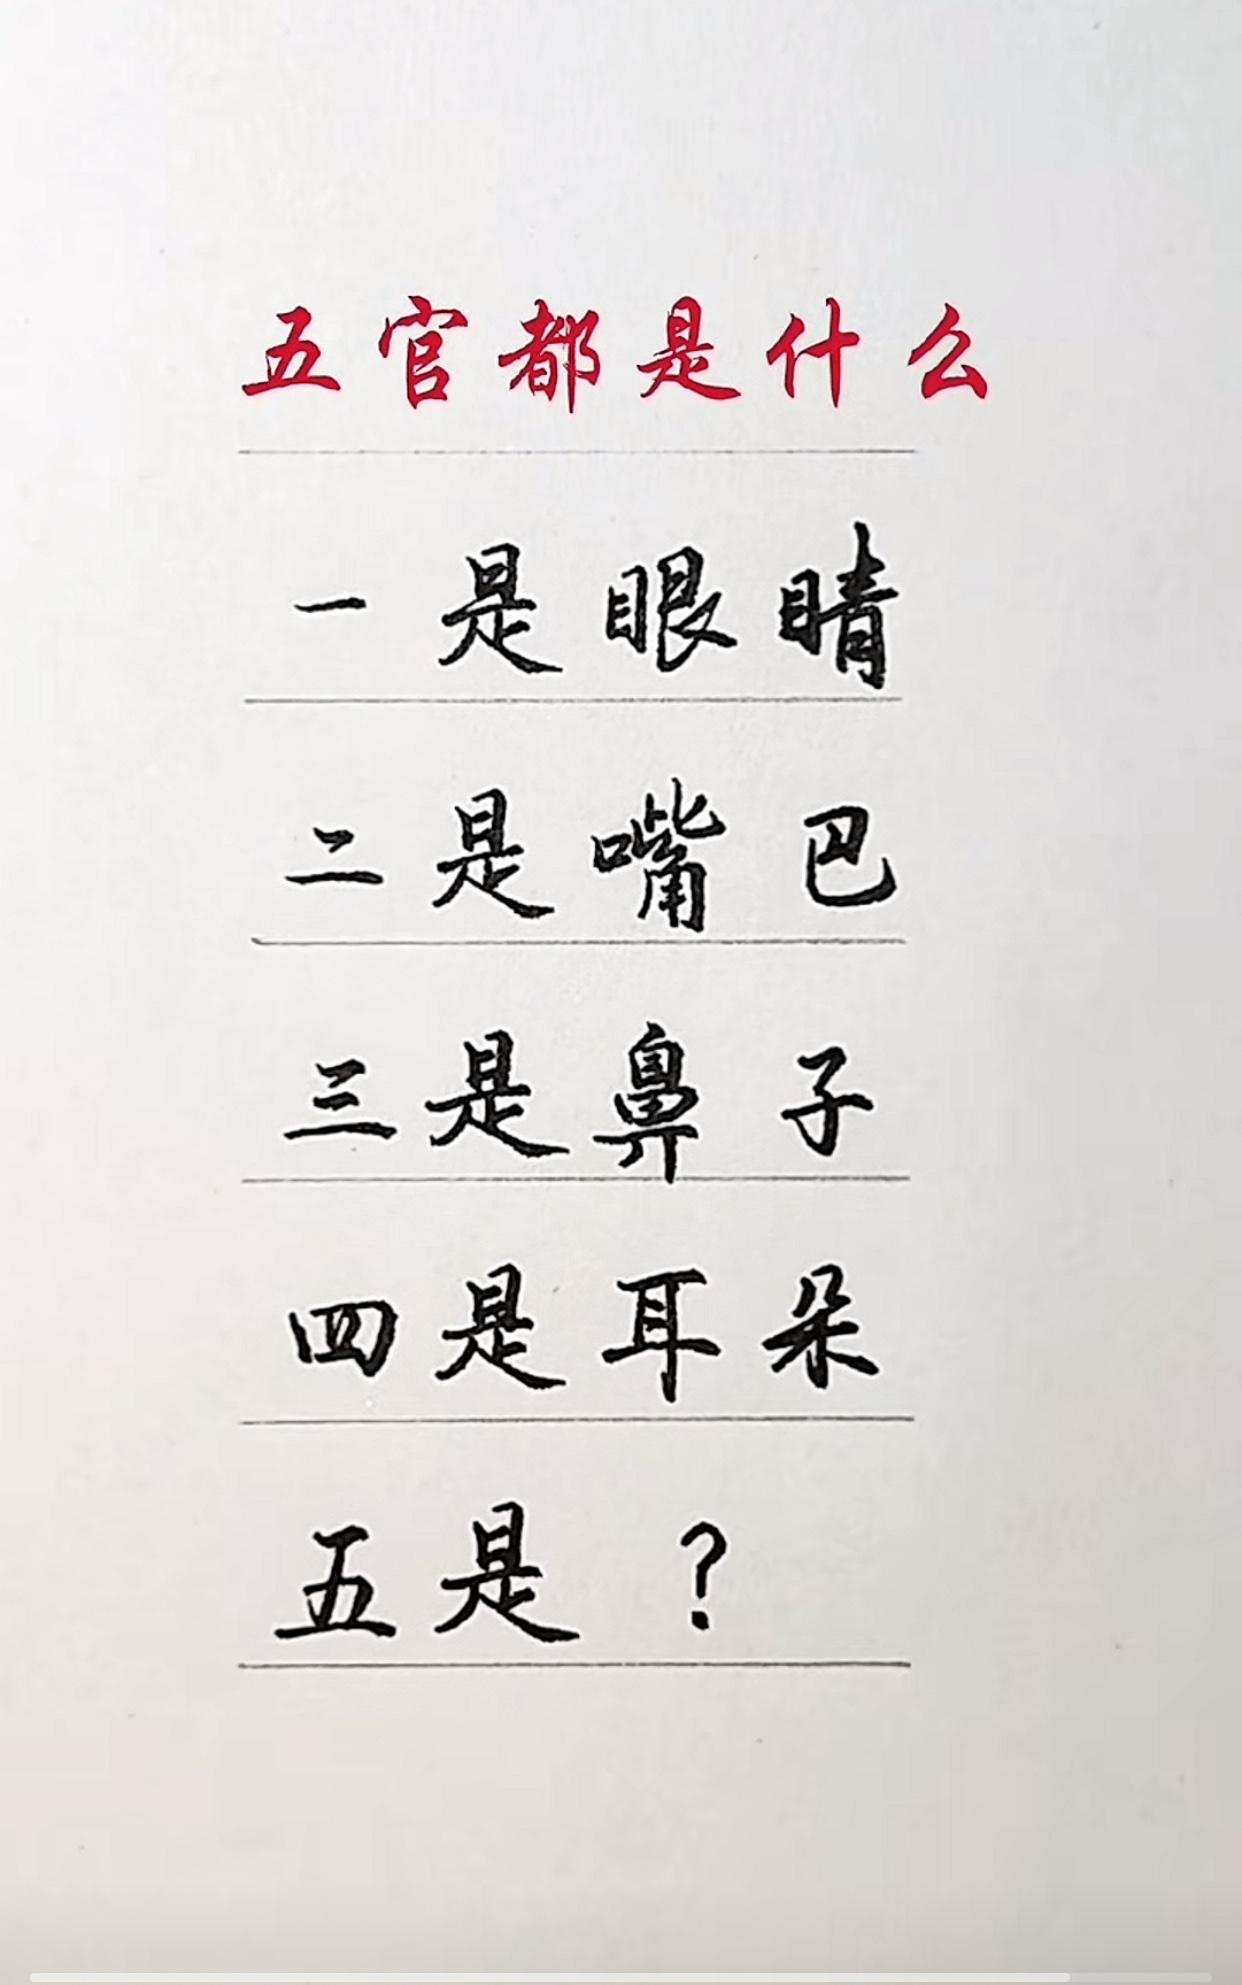 五官都是什么
一是眼睛
二是嘴巴
三是鼻子
四是耳朵
五是？